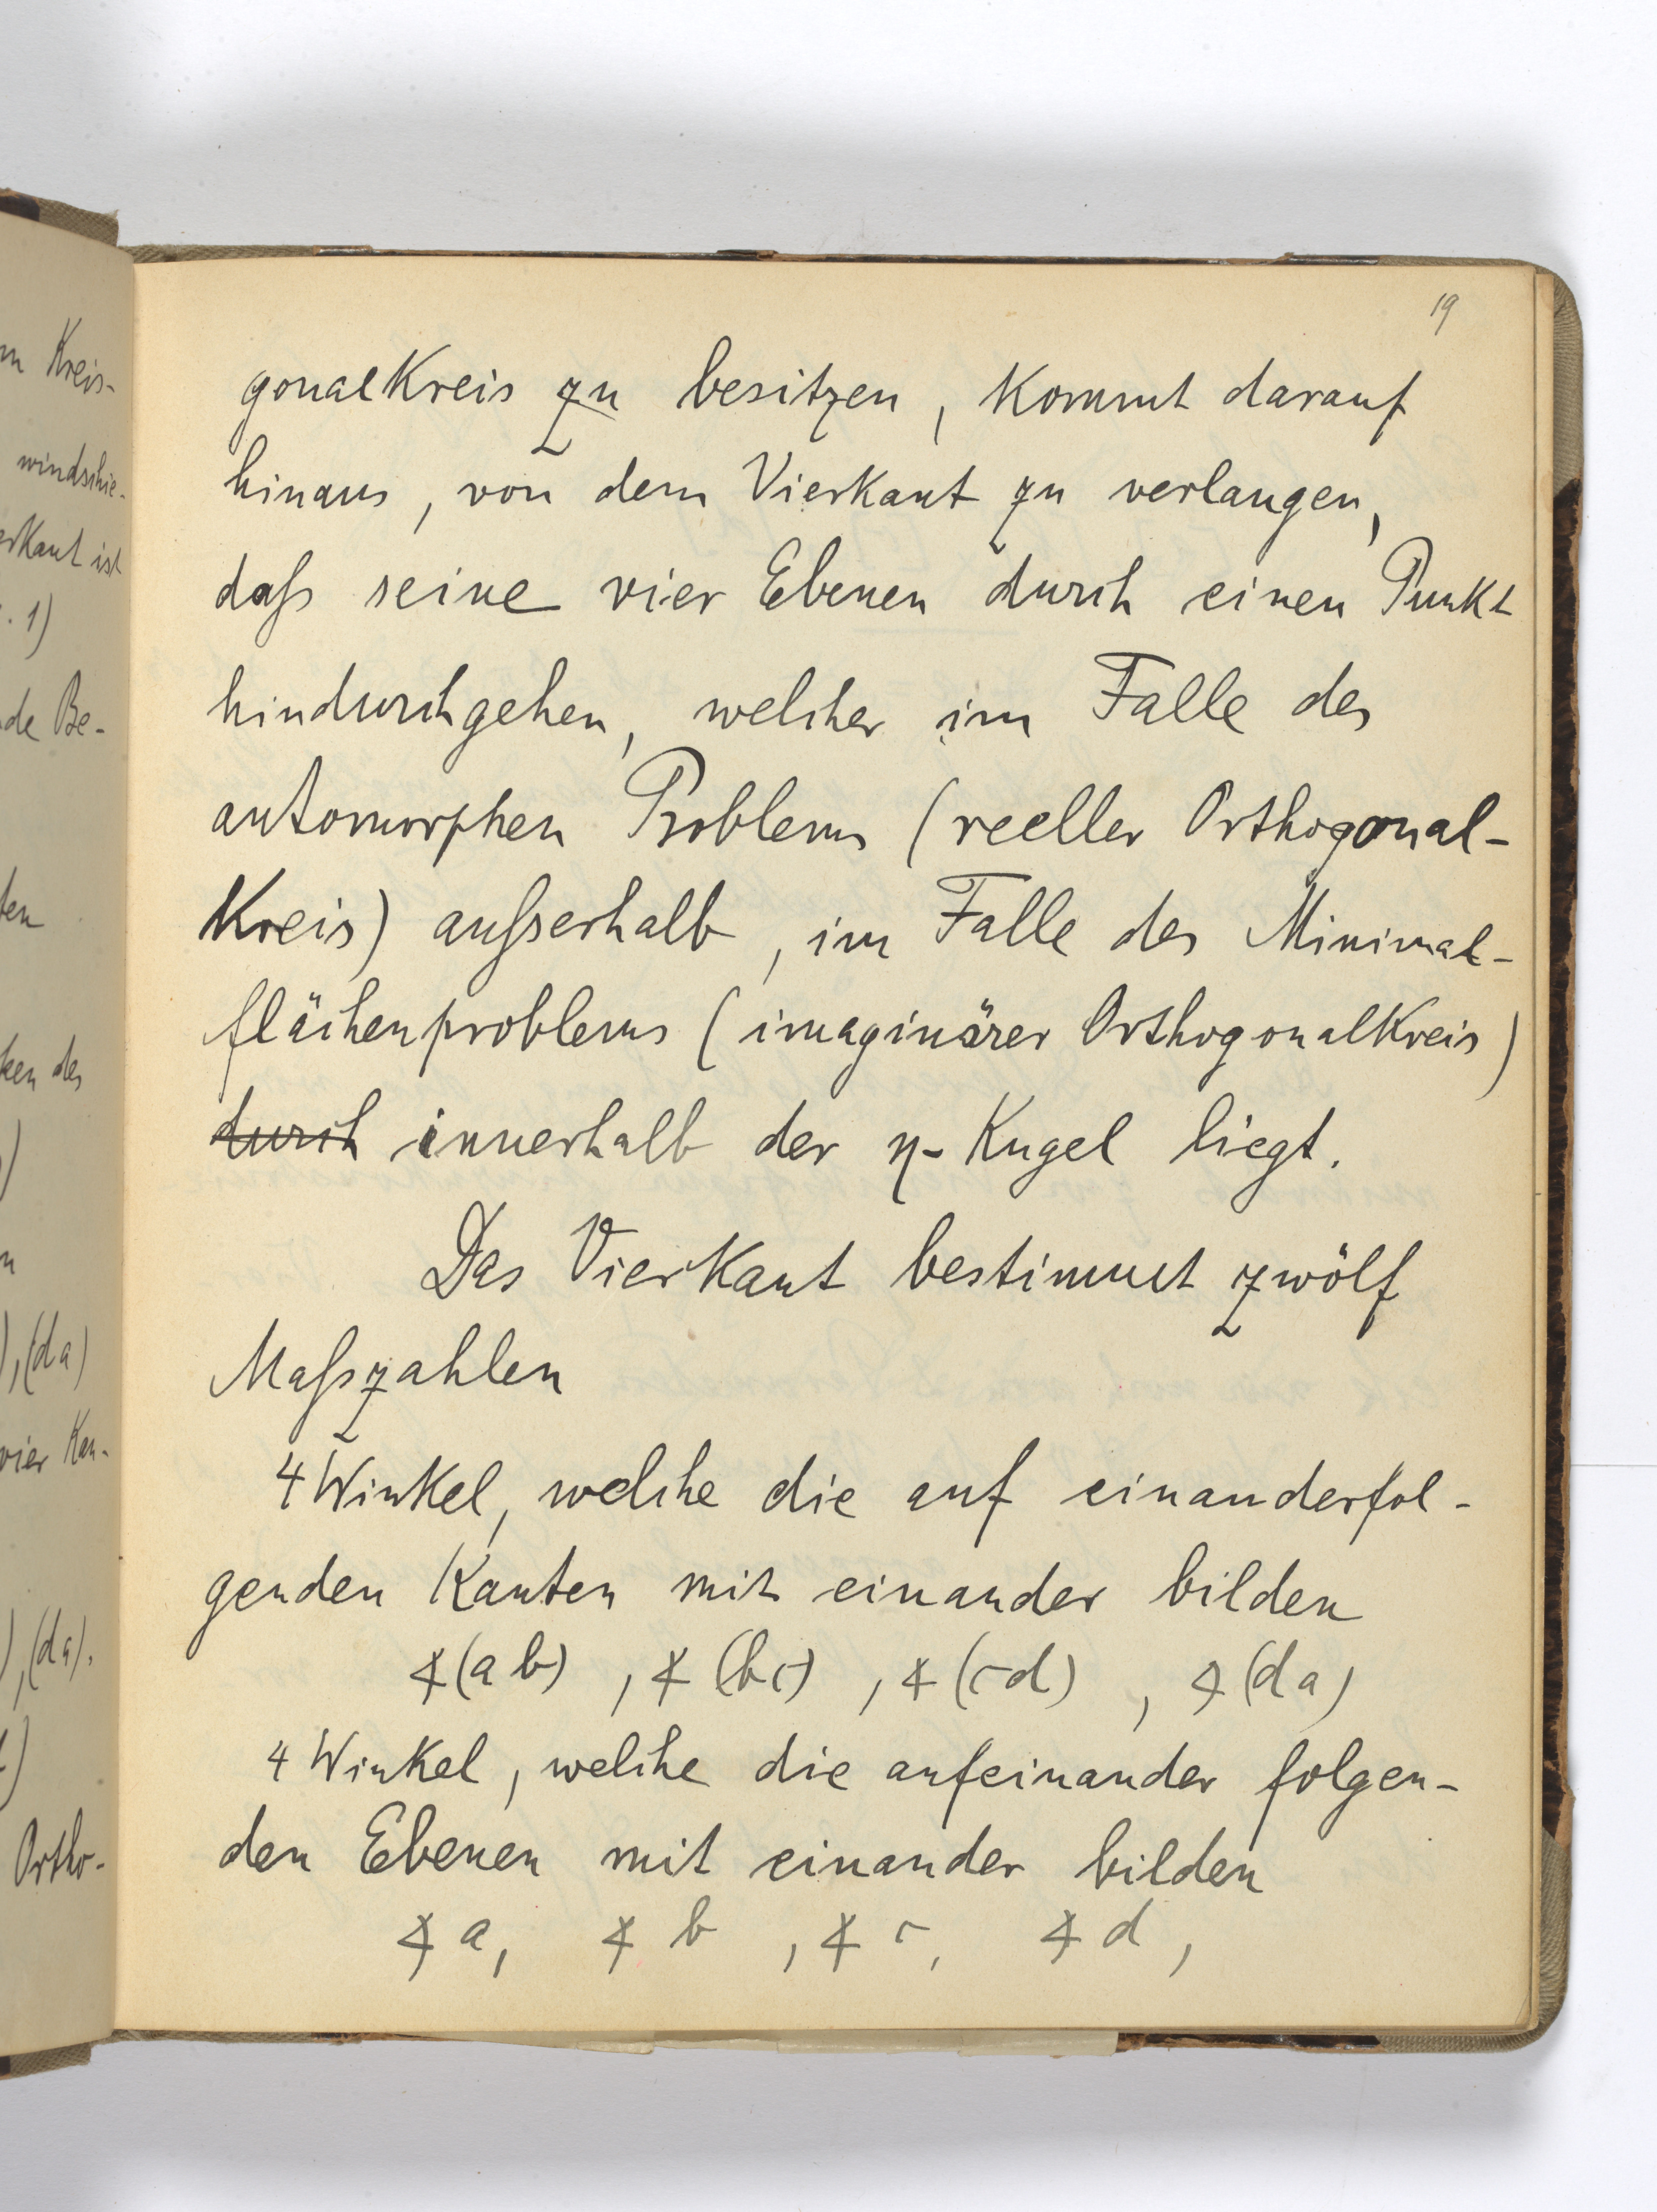 m Kreis-
windschie-
erkant ist
. 1)
de Be-
ten
ken des
), (da)
vier Kan-
), (da).
Ortho-
19
gonalkreis zu besitzen, kommt darauf
hinaus, von dem Vierkant zu verlangen,
daß seine vier Ebenen durch einen Punkt
hindurchgehen, welcher im Falle des
automorphen Problems (reeller Orthogonal-
kreis) außerhalb, im Falle des Minimal-
flächenproblems (imaginärer Orthogonalkreis)
durch innerhalb der η-Kugel liegt.
Das Vierkant bestimmt zwölf
Maßzahlen
4 Winkel, welche die auf einanderfol-
genden Kanten mit einander bilden
∢(ab), ∢(bc), ∢(cd), ∢(da)
4 Winkel, welche die aufeinander folgen-
den Ebenen mit einander bilden
∢a, ∢b, ∢c, ∢d,